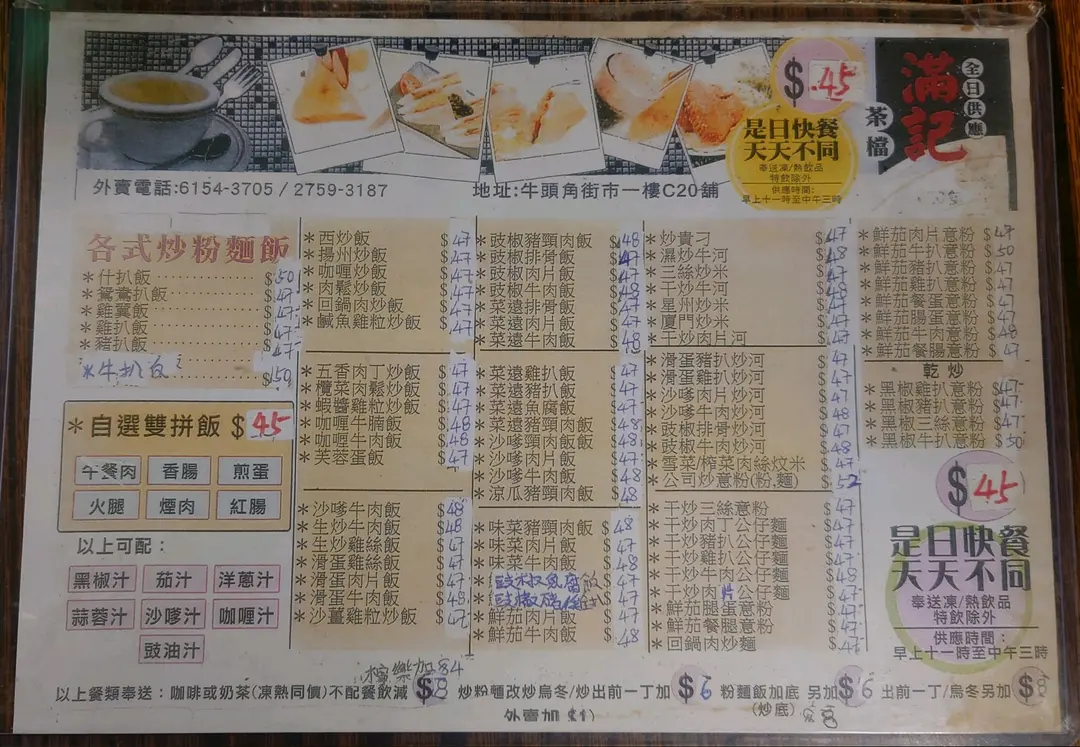 滿記
茶檔
全日供應
$45
是日快餐
天天不同
奉送凍/熱飲品
特飲除外
供應時間:
早上十一時至中午三時
外賣電話:6154-3705 / 2759-3187
地址:牛頭角街市一樓C20舖
各式炒粉麵飯
*什扒飯 $50
*鴛鴦扒飯 $47
*雞翼飯 $47
*雞扒飯 $47
*豬扒飯 $47
*牛扒飯 $50
*自選雙拼飯 $45
午餐肉 香腸 煎蛋
火腿 煙肉 紅腸
以上可配:
黑椒汁 茄汁 洋蔥汁
蒜蓉汁 沙嗲汁 咖喱汁
豉油汁
*西炒飯 $47
*揚州炒飯 $47
*咖喱炒飯 $47
*肉鬆炒飯 $47
*回鍋肉炒飯 $47
*鹹魚雞粒炒飯 $47
*五香肉丁炒飯 $47
*欖菜肉鬆炒飯 $47
*蝦醬雞粒炒飯 $47
*咖喱牛腩飯 $48
*咖喱牛肉飯 $48
*芙蓉蛋飯 $47
*沙嗲牛肉飯 $48
*生炒牛肉飯 $48
*生炒雞絲飯 $47
*滑蛋雞絲飯 $47
*滑蛋肉片飯 $47
*滑蛋牛肉飯 $48
*沙薑雞粒炒飯 $47
*豉椒豬頸肉飯 $48
*豉椒排骨飯 $47
*豉椒肉片飯 $47
*豉椒牛肉飯 $48
*菜遠排骨飯 $47
*菜遠肉片飯 $47
*菜遠牛肉飯 $48
*菜遠雞扒飯 $47
*菜遠豬扒飯 $47
*菜遠魚腐飯 $47
*菜遠豬頸肉飯 $48
*沙嗲豬頸肉飯 $48
*沙嗲肉片飯 $47
*沙嗲牛肉飯 $48
*涼瓜豬頸肉飯 $48
*味菜豬頸肉飯 $48
*味菜肉片飯 $47
*味菜牛肉飯 $48
*豉椒魚腐飯 $47
*豉椒 $47
*鮮茄肉片飯 $47
*鮮茄牛肉飯 $48
*炒貴刁 $47
*濕炒牛河 $48
*三絲炒米 $47
*干炒牛河 $48
*星州炒米 $47
*廈門炒米 $47
*干炒肉片河 $47
*滑蛋豬扒炒河 $47
*滑蛋雞扒炒河 $47
*沙嗲肉片炒河 $47
*沙嗲牛肉炒河 $48
*豉椒排骨炒河 $47
*豉椒牛肉炒河 $48
*雪菜/榨菜肉絲炆米 $47
*公司炒意粉(粉,麵) $52
*干炒三絲意粉 $47
*干炒肉丁公仔麵 $47
*干炒豬扒公仔麵 $47
*干炒雞扒公仔麵 $47
*干炒牛肉公仔麵 $48
*干炒肉片公仔麵 $47
*鮮茄腿蛋意粉 $47
*鮮茄餐腿意粉 $47
*回鍋肉炒麵 $47
*鮮茄肉片意粉 $47
*鮮茄牛扒意粉 $50
*鮮茄豬扒意粉 $47
*鮮茄雞扒意粉 $47
*鮮茄餐蛋意粉 $47
*鮮茄腸蛋意粉 $47
*鮮茄牛肉意粉 $48
*鮮茄餐腸意粉 $47
乾炒
*黑椒雞扒意粉 $47
*黑椒豬扒意粉 $47
*黑椒三絲意粉 $47
*黑椒牛扒意粉 $50
$45
是日快餐
天天不同
奉送凍/熱飲品
特飲除外
供應時間:
早上十一時至中午三時
檸樂加$4
以上餐類奉送:咖啡或奶茶(凍熱同價)不配餐飲減$8 炒粉麵改炒烏冬/炒出前一丁加$6 粉麵飯加底(炒底)另加$6 出前一丁/烏冬另加$8
外賣加$1